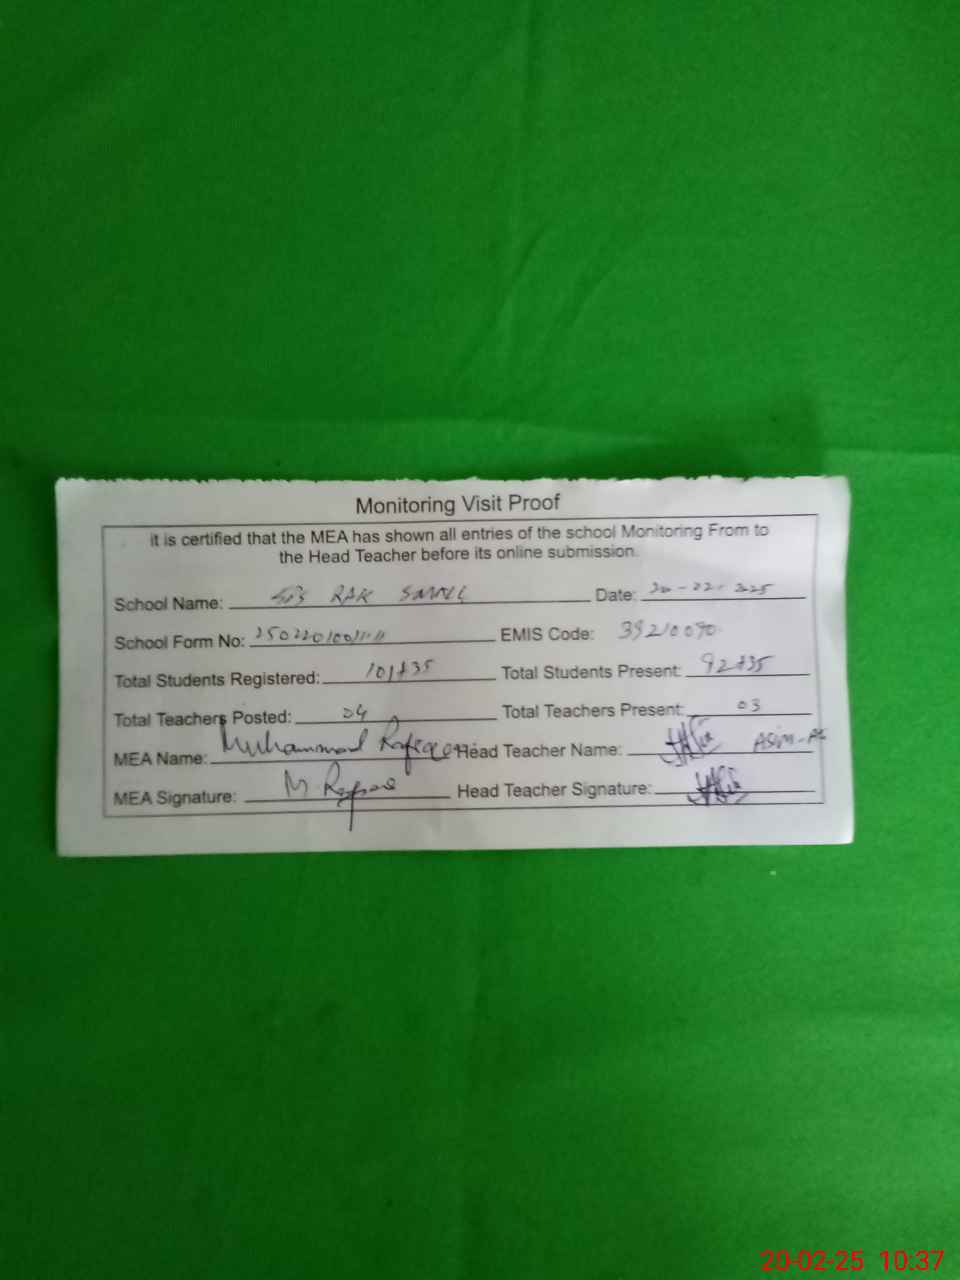 Monitoring Visit Proof
it is certified that the MEA has shown all entries of the school Monitoring From to
the Head Teacher before its online submission.
School Name: Date:
School Form No: EMIS Code: 39210090
Total Students Registered: 101+35 Total Students Present: 92+35
Total Teachers Posted: 04 Total Teachers Present: 03
MEA Name: Muhammad Rafique Head Teacher Name:
MEA Signature: Head Teacher Signature:
20-02-25 10:37